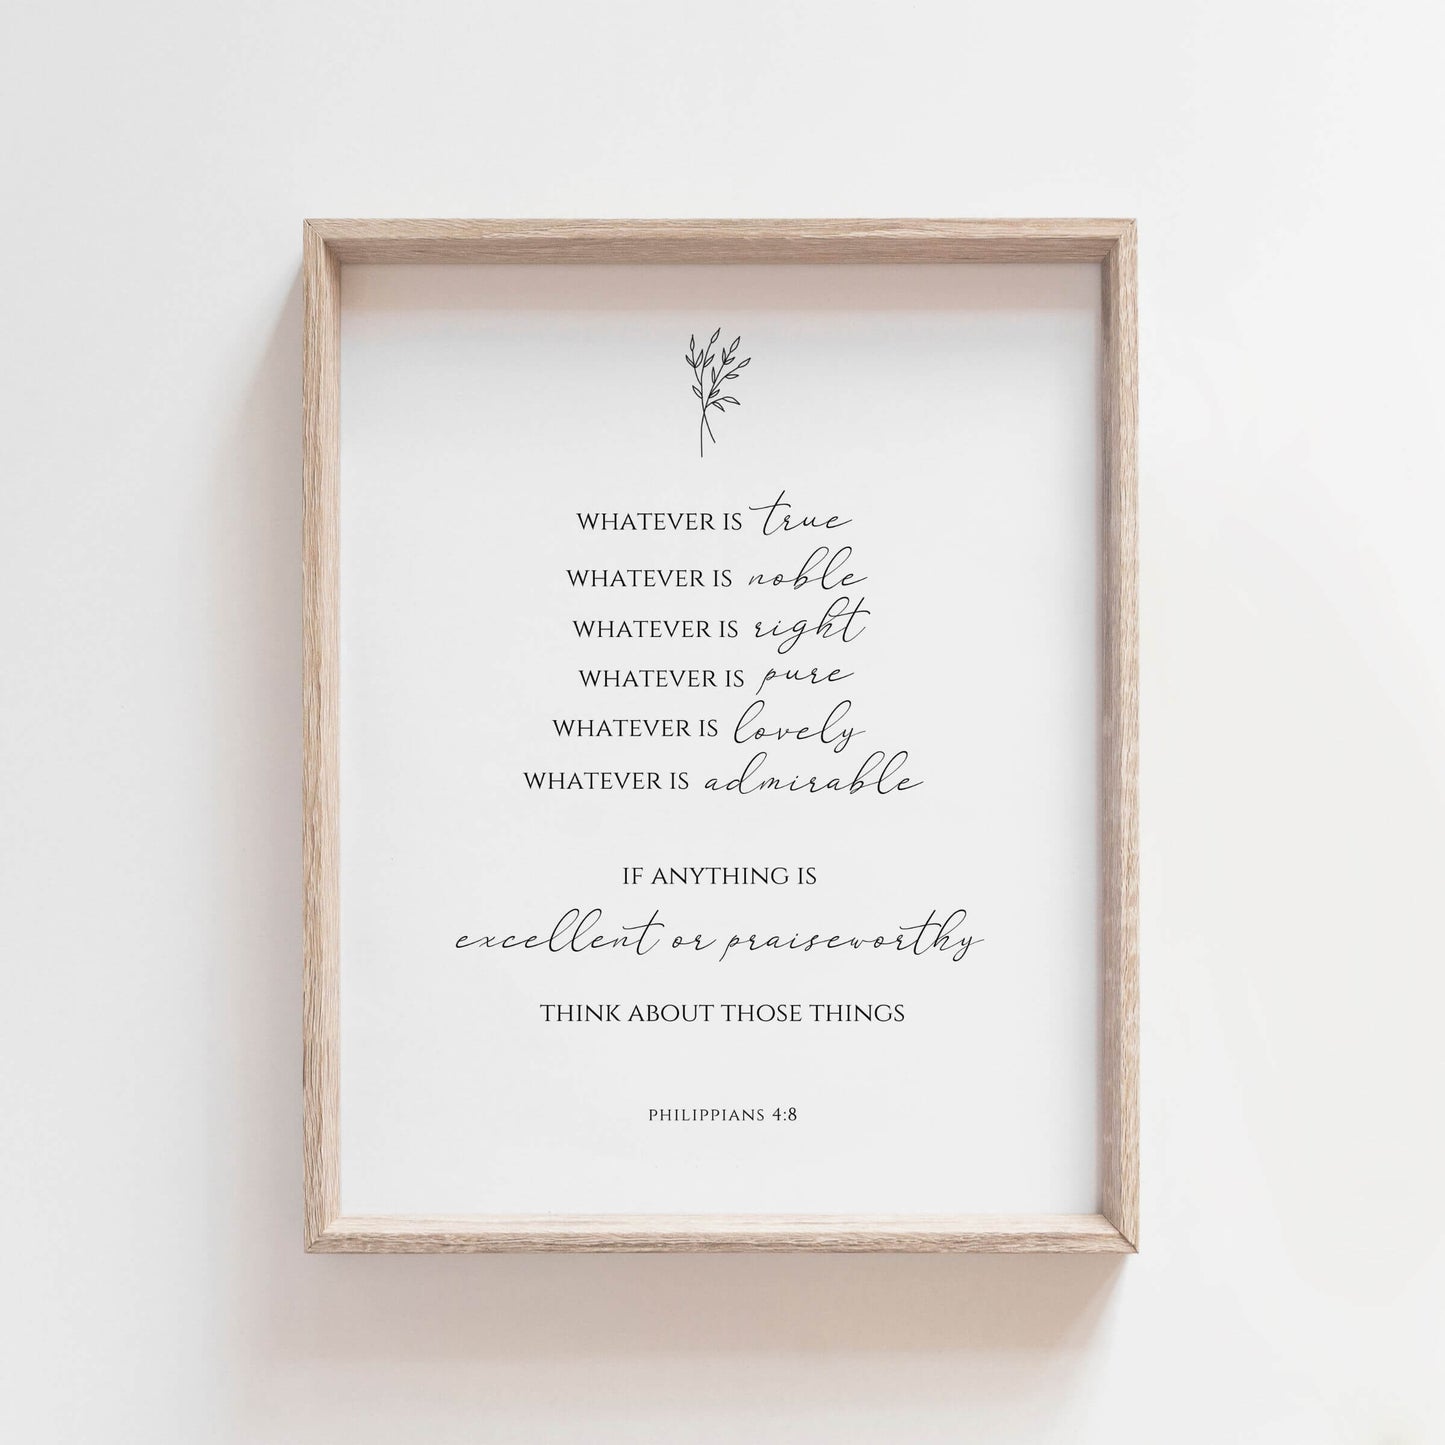 WHATEVER IS true
WHATEVER IS noble
WHATEVER IS right
WHATEVER IS pure
WHATEVER IS lovely
WHATEVER IS admirable
IF ANYTHING IS
excellent or praiseworthy
THINK ABOUT THOSE THINGS
PHILIPPIANS 4:8